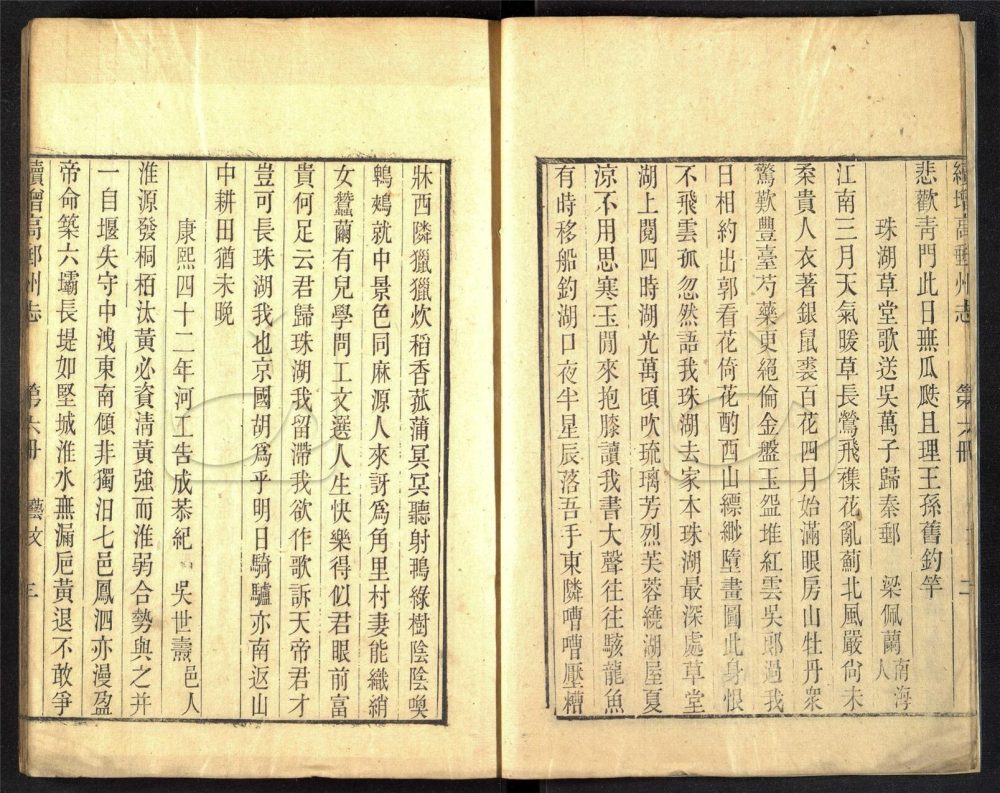 續增高郵州志 第六冊 二
悲歡靑門此日無瓜瓞且理王孫舊釣竿
珠湖草堂歌送吳萬子歸秦郵 梁佩蘭南海人
江南三月天氣暖草長鶯飛襍花亂薊北風嚴尙未
柰貴人衣著銀鼠裘百花四月始滿眼房山牡丹衆
驚歎豐臺芍藥更絕倫金盤玉盌堆紅雲吳郞過我
日相約出郭看花倚花酌西山縹緲墮畫圖此身恨
不飛雲孤忽然語我珠湖去家本珠湖最深處草堂
湖上閱四時湖光萬頃吹琉璃芳烈芙蓉繞湖屋夏
涼不用思寒玉閒來抱膝讀我書大聲往往駭龍魚
有時移船釣湖口夜半星辰落吾手東隣嘈嘈壓糟
牀西隣獵獵炊稻香菰蒲冥冥聽射鴨綠樹陰陰喚
鵯鵊就中景色同麻源人來訝爲角里村妻能織綃
女蠶繭有兒學問工文選人生快樂得似君眼前富
貴何足云君歸珠湖我留滯我欲作歌訴天帝君才
豈可長珠湖我也京國胡爲乎明日騎驢亦南返山
中耕田猶未晚
康熙四十二年河工告成恭紀 吳世燾邑人
淮源發桐栢汰黃必資淸黃強而淮弱合勢與之幷
一自堰失守中洩東南傾非獨汨七邑鳳泗亦漫盈
帝命築六壩長堤如堅城淮水無漏巵黃退不敢爭
續增高郵州志 第六冊 藝文 三